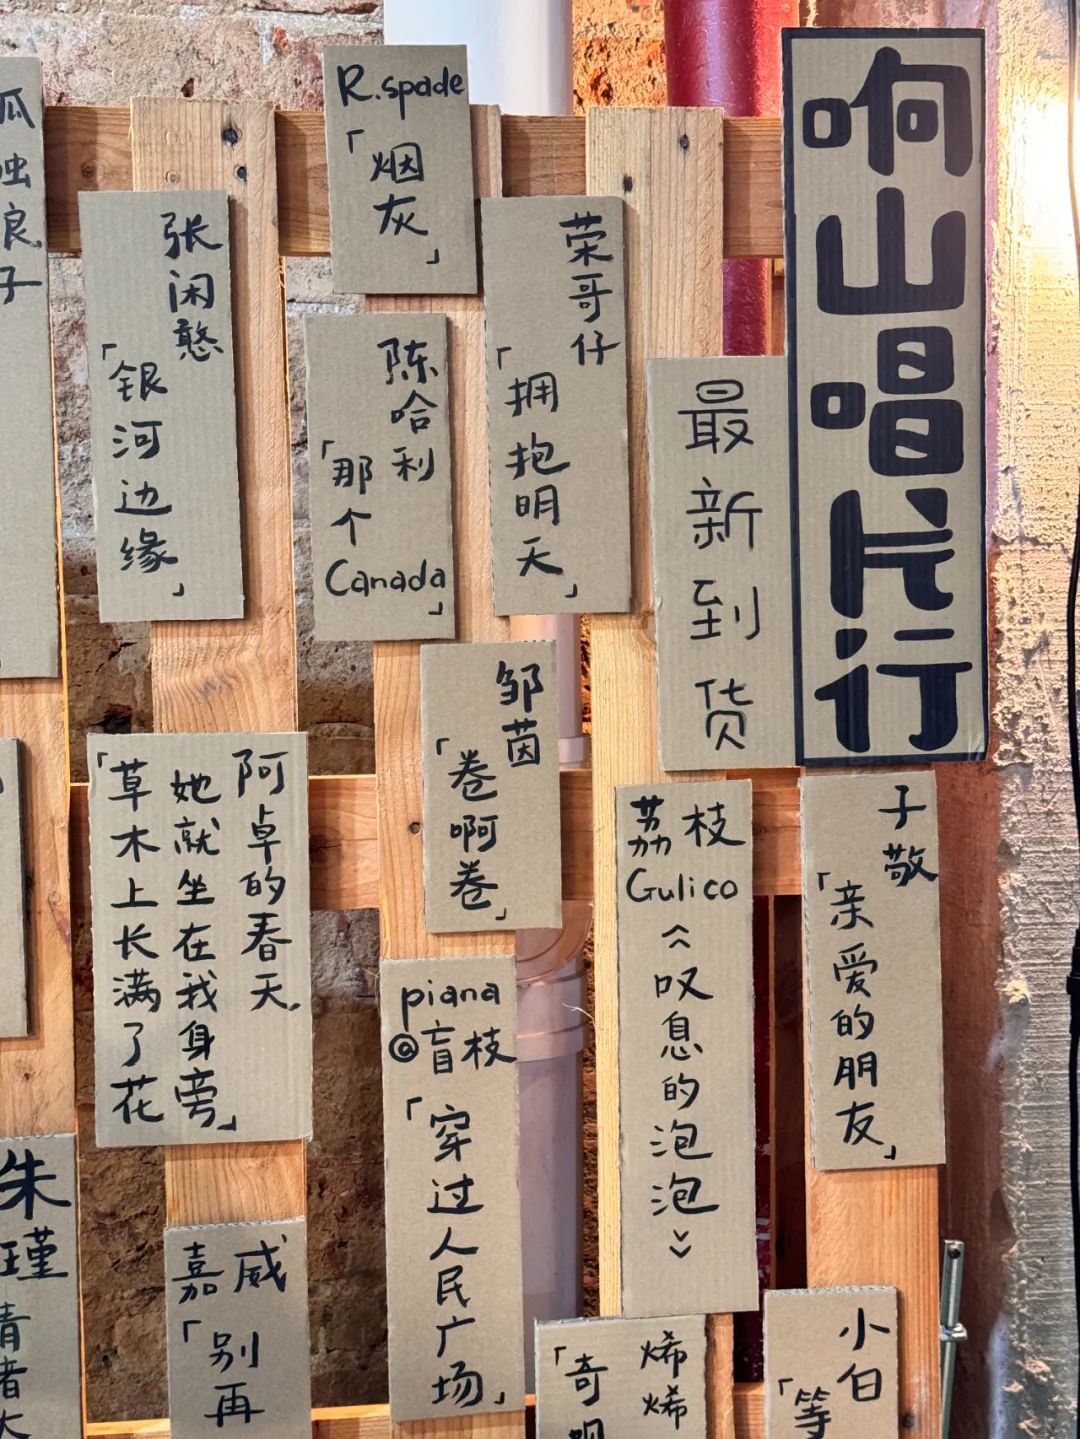 响山唱片行
最新到货
R.spade
「烟灰」
荣哥仔
「拥抱明天」
陈哈利
「那个
Canada」
张闲憨
「银河边缘」
孤独良
子
邹茵
「卷啊卷」
阿卓的春天
她就坐在我身旁
「草木上长满了花」
荔枝
Gulico
《叹息的泡泡》
子敬
「亲爱的朋友」
piana
@盲枝
「穿过人民广场」
嘉威
「别再
朱瑾
烯烯
「奇
小白
「等